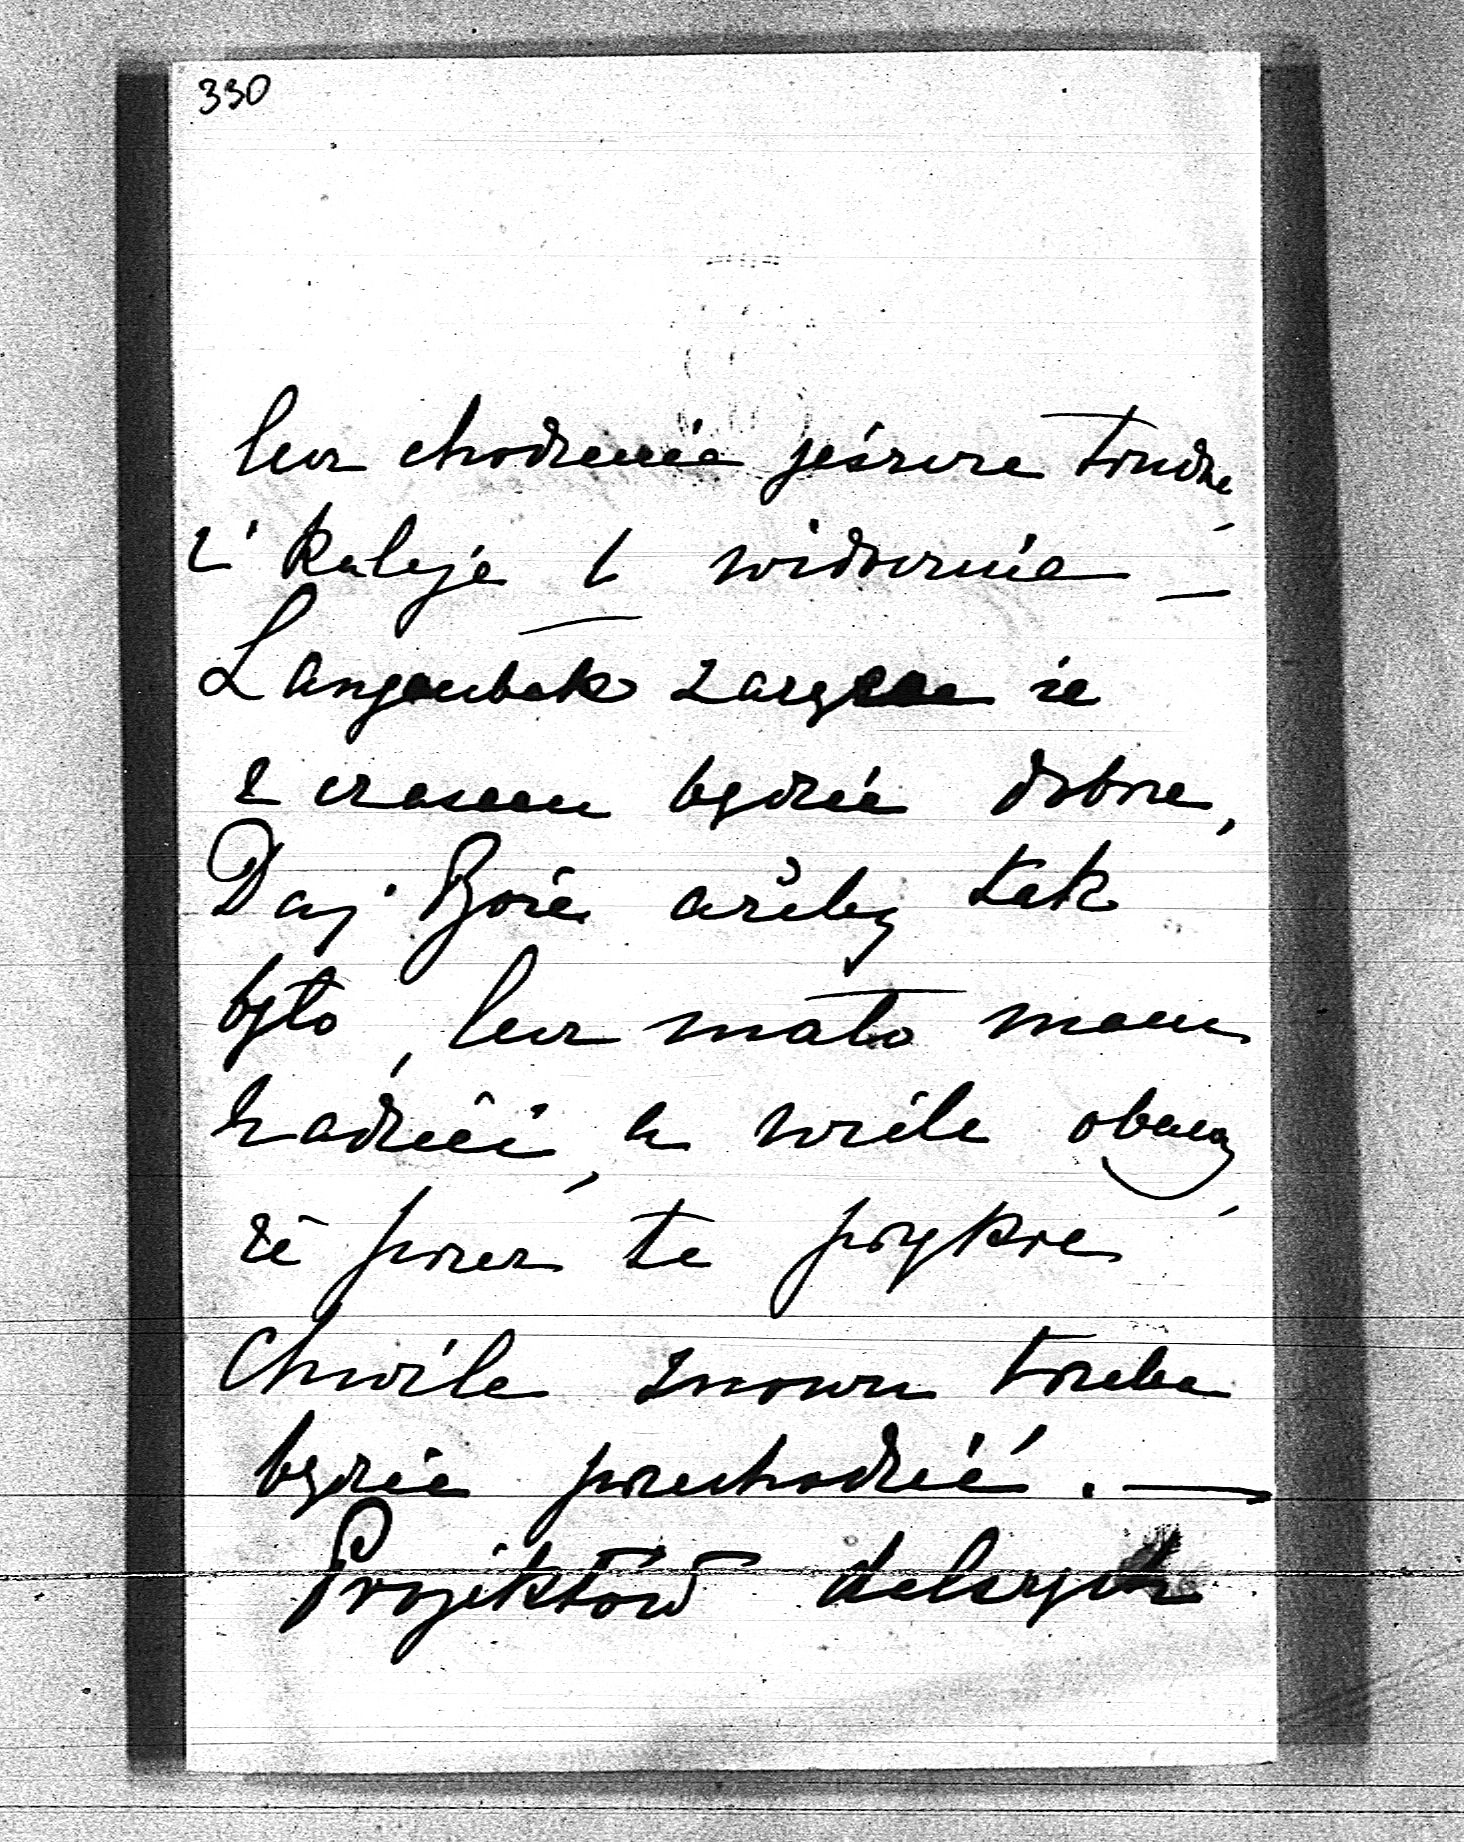 330
lecz chodzenie jeszcze trudne
i kuleje b widocznie —
Langenbek zaręcza że
z czasem będzie dobrze,
Daj Boże ażeby tak
było, lecz mało mam
nadzieii, a wiele obawy
że przez te przykre
chwile znowu trzeba
będzie przechodzić. —
Projektów dalszych